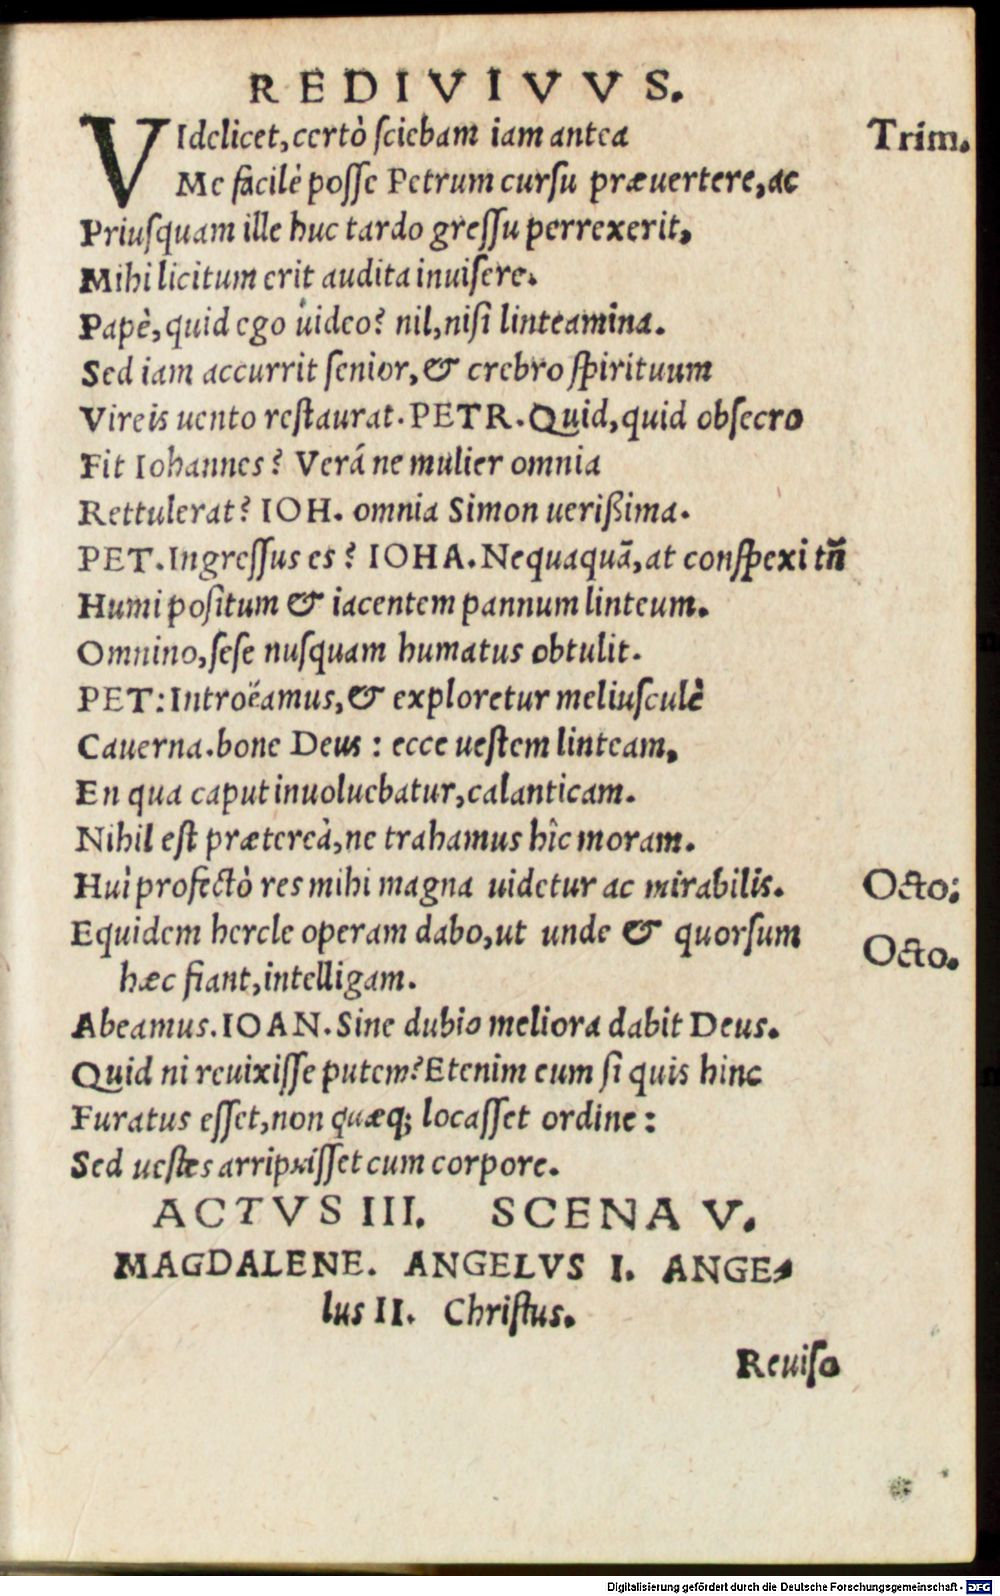 REDIVIVVS.
VIdelicet, certò ſciebam iam antea
Trim.
Me facilè poſſe Petrum curſu præuertere, ac
Priuſquam ille huc tardo greſſu perrexerit,
Mihi licitum erit audita inuiſere.
Papè, quid ego uideo? nil, niſi linteamina.
Sed iam accurrit ſenior, & crebro ſpirituum
Vireis uento reſtaurat. PETR. Quid, quid obſecro
Fit Iohannes? Verá ne mulier omnia
Rettulerat? IOH. omnia Simon uerißima.
PET. Ingreſſus es? IOHA. Nequaquã, at conſpexi tñ
Humi poſitum & iacentem pannum linteum.
Omnino, ſeſe nuſquam humatus obtulit.
PET: Introëamus, & exploretur meliuſculè
Cauerna. bone Deus: ecce ueſtem linteam,
En qua caput inuoluebatur, calanticam.
Nihil eſt prætereà, ne trahamus hîc moram.
Huì profectò res mihi magna uidetur ac mirabilis.
Octo:
Equidem hercle operam dabo, ut unde & quorſum
Octo.
hæc fiant, intelligam.
Abeamus. IOAN. Sine dubio meliora dabit Deus.
Quid ni reuixiſſe putem? Etenim eum ſi quis hinc
Furatus eſſet, non quæq; locaſſet ordine:
Sed ueſtes arripuiſſet cum corpore.
ACTVS III. SCENA V.
MAGDALENE. ANGELVS I. ANGE-
lus II. Chriſtus.
Reuiſo
Digitalisierung gefördert durch die Deutsche Forschungsgemeinschaft - DFG